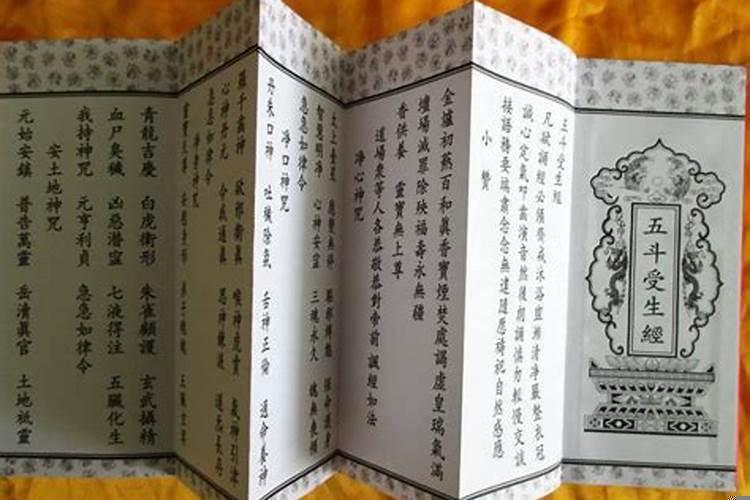 五斗受生經
五斗受生經
凡欲誦經必須齋戒沐浴盥漱清淨嚴整衣冠
誠心定氣叩齒演音然後朗誦慎勿輕慢交談
接語務要端肅念念無違隨愿禱祀自然感應
小贊
金爐初爇百和真香寶煙焚處謁虛皇瑞氣滿
壇場滅罪除殃福壽永無疆
香供養 靈寶無上尊
道場衆等人各恭敬恭對帝前 誦經如法
淨心神咒
太上台星 應變無停 驅邪縛魅 保命護身
智慧明淨 心神安寧 三魂永久 魄無喪傾
急急如律令
淨口神咒
丹朱口神 吐穢除氛 舌神正倫 通命養神
羅千齒神 卻邪衛真 喉神虎賁 氣神引津
心神丹元 令我通真 思神鍊液 道炁長存
急急如律令
淨身神咒
靈寶天尊 安慰身形 弟子魂魄 五臟玄冥
青龍吉慶 白虎衛形 朱雀顧護 玄武攝精
血尸臭穢 凶惡潜寧 七液得注 五臟化生
我持神咒 元亨利貞 急急如律令
安土地神咒
元始安鎮 普告萬靈 岳清真官 土地祗靈